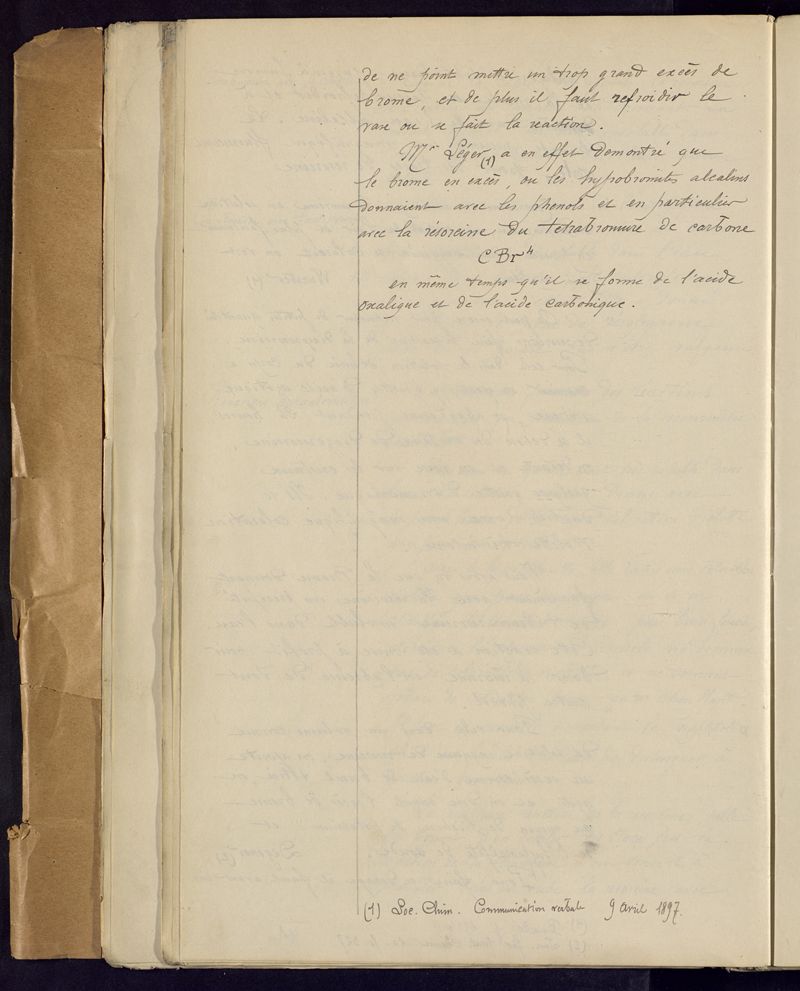 de ne point mettre un trop grand excès de
brome, et de plus il faut refroidir le
vase ou se fait la reaction.
Mr Léger (1) a en effet demontré que
le brome en excès, ou les hypobromites alcalins
donnaient avec les phenols et en particulier
avec la résorcine du tetrabromure de carbone
CBr4
en même temps qu'il se forme de l'acide
oxalique et de l'acide carbonique.
(1) Soc. Chim. Communication verbale 9 avril 1897.